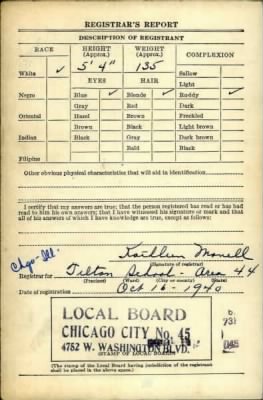 REGISTRAR'S REPORT
DESCRIPTION OF REGISTRANT
RACE HEIGHT (Approx.) WEIGHT (Approx.) COMPLEXION
White ✓ 5' 4" 135 Sallow
EYES HAIR Light
Negro Blue ✓ Blonde ✓ Ruddy ✓
Gray Red Dark
Oriental Hazel Brown Freckled
Brown Black Light brown
Indian Black Gray Dark brown
Bald Black
Filipino
Other obvious physical characteristics that will aid in identification
I certify that my answers are true; that the person registered has read or has had read to him his own answers; that I have witnessed his signature or mark and that all of his answers of which I have knowledge are true, except as follows:
Chgo-Ill.
Kathleen
(Signature of registrar)
Registrar for Tilton School - Area 44
(Precinct) (Ward) (City or county) (State)
Date of registration Oct 16 - 1940
LOCAL BOARD
CHICAGO CITY No. 45
4752 W. WASHINGTON BLVD.
(STAMP OF LOCAL BOARD)
(The stamp of the Local Board having jurisdiction of the registrant shall be placed in the above space.)